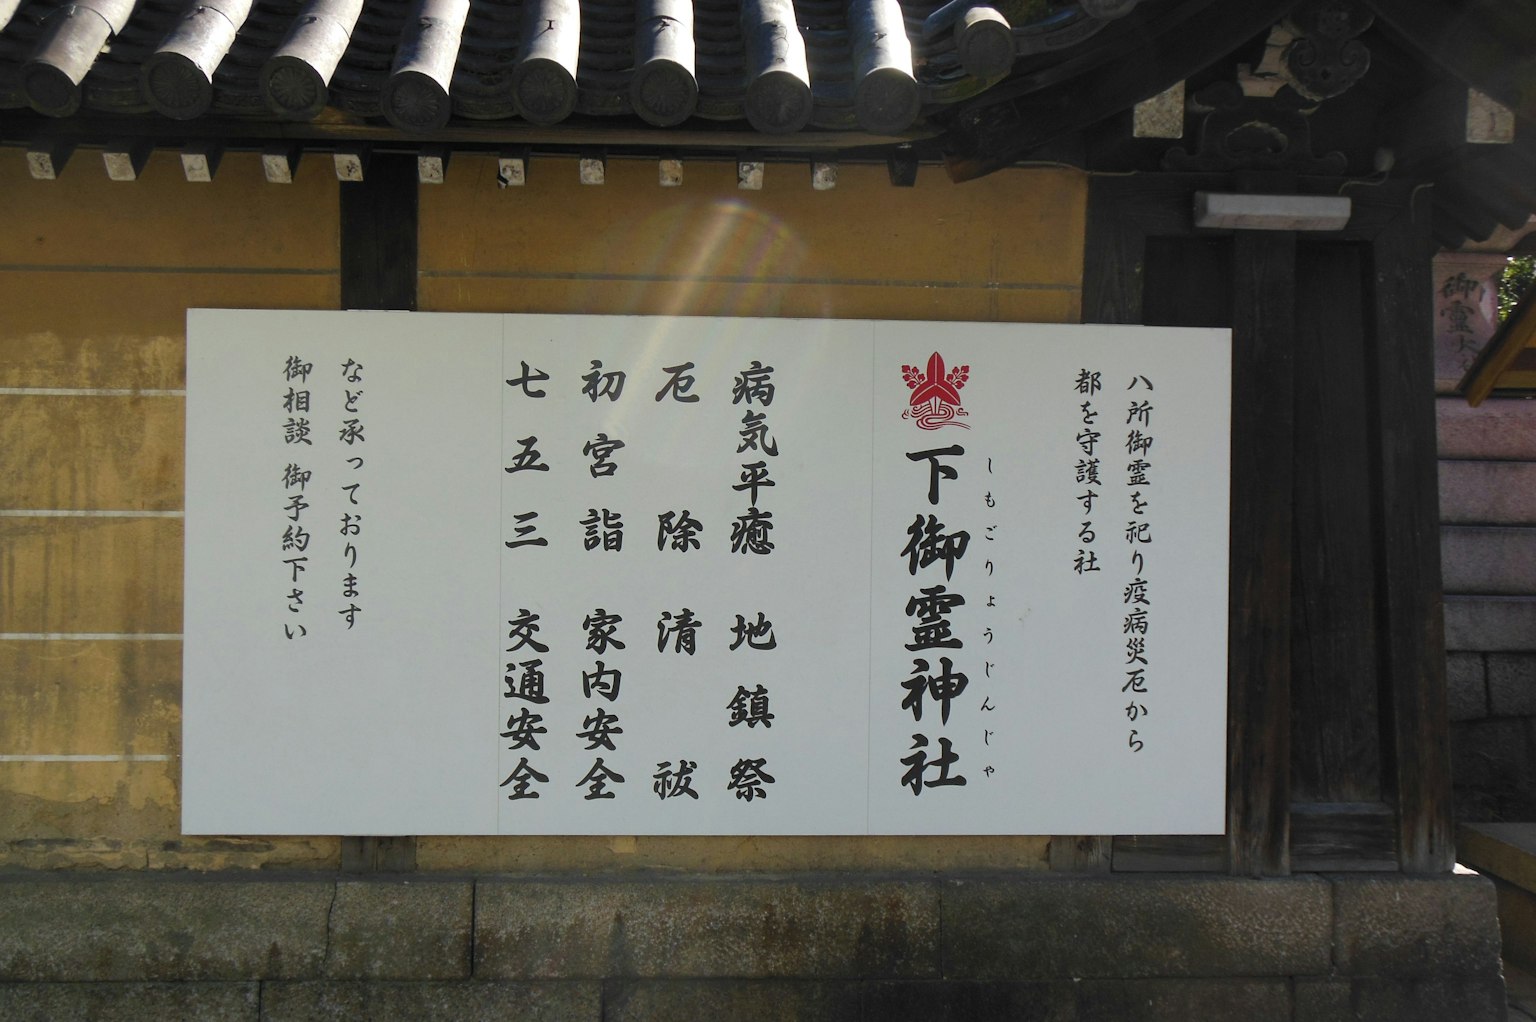 八所御霊を祀り疫病災厄から
都を守護する社
しもごりょうじんじゃ
下御霊神社
病気平癒 地鎮祭
厄除清祓
初宮詣 家内安全
七五三 交通安全
など承っております
御相談 御予約下さい
御霊